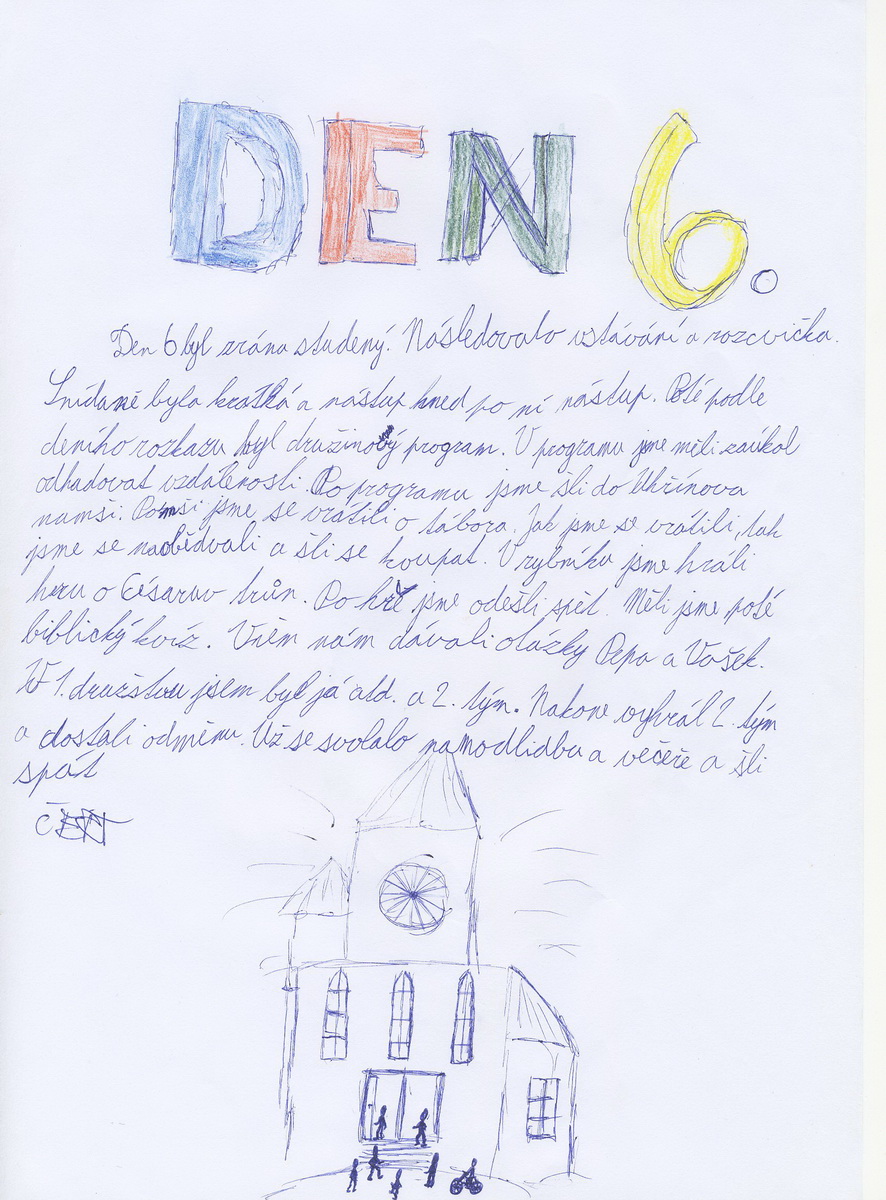 DEN 6.
Den 6 byl zrána studený. Následovalo vstávání a rozcvička.
Snídaně byla krátká a nástup hned po ní nástup. Poté podle
deního rozkazu byl družinový program. V programu jsme měli zaúkol
odhadovat vzdálenosti. Po programu jsme šli do Uhřínova
namši. Pomši jsme se vrátili o tábora. Jak jsme se vrátili, tak
jsme se naobědvali a šli se koupat. V rybníku jsme hráli
hru o Césaruv trůn. Po hře jsme odešli spět. Měli jsme poté
biblický kvíz. Vněm nám dávali otázky Pepa a Vašek.
V 1. družstvu jsem byl já atd. a 2. tým. Nakone vyhrál 2. tým
a dostali odměnu. Už se svolalo namodlidbu a večeře a šli
spát